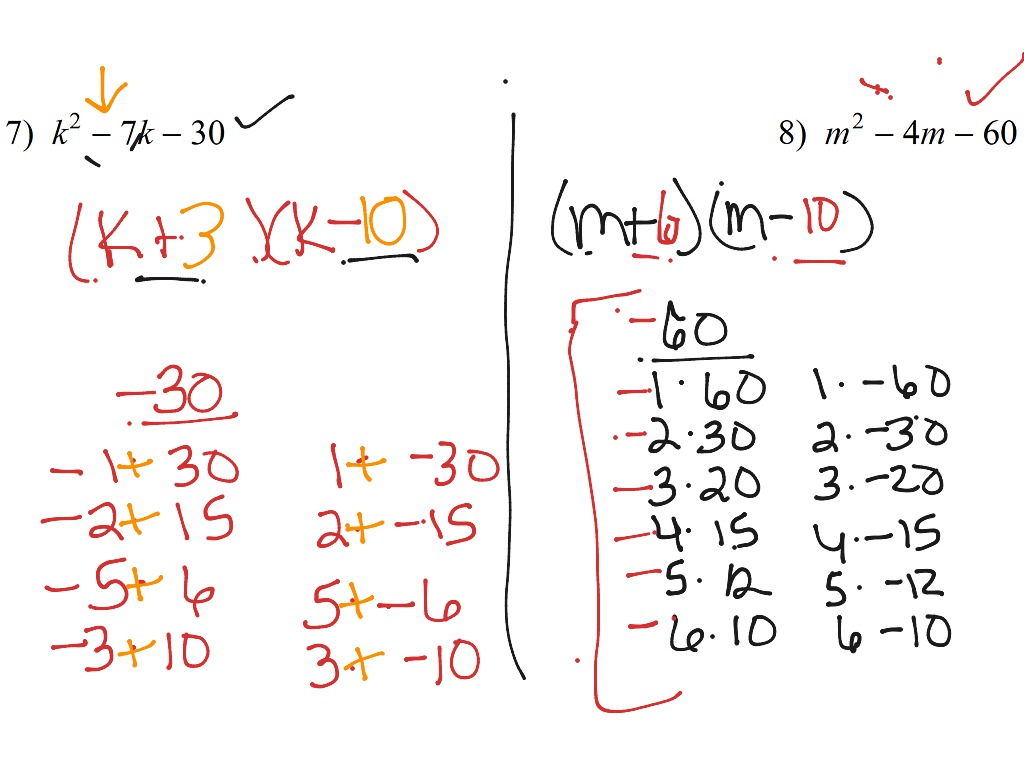 7) k² − 7k − 30
(k + 3)(k − 10)
−30
−1 + 30    1 + −30
−2 + 15    2 + −15
−5 + 6    5 + −6
−3 + 10    3 + −10
8) m² − 4m − 60
(m + 6)(m − 10)
−60
−1 · 60    1 · −60
−2 · 30    2 · −30
−3 · 20    3 · −20
−4 · 15    4 · −15
−5 · 12    5 · −12
−6 · 10    6 −10